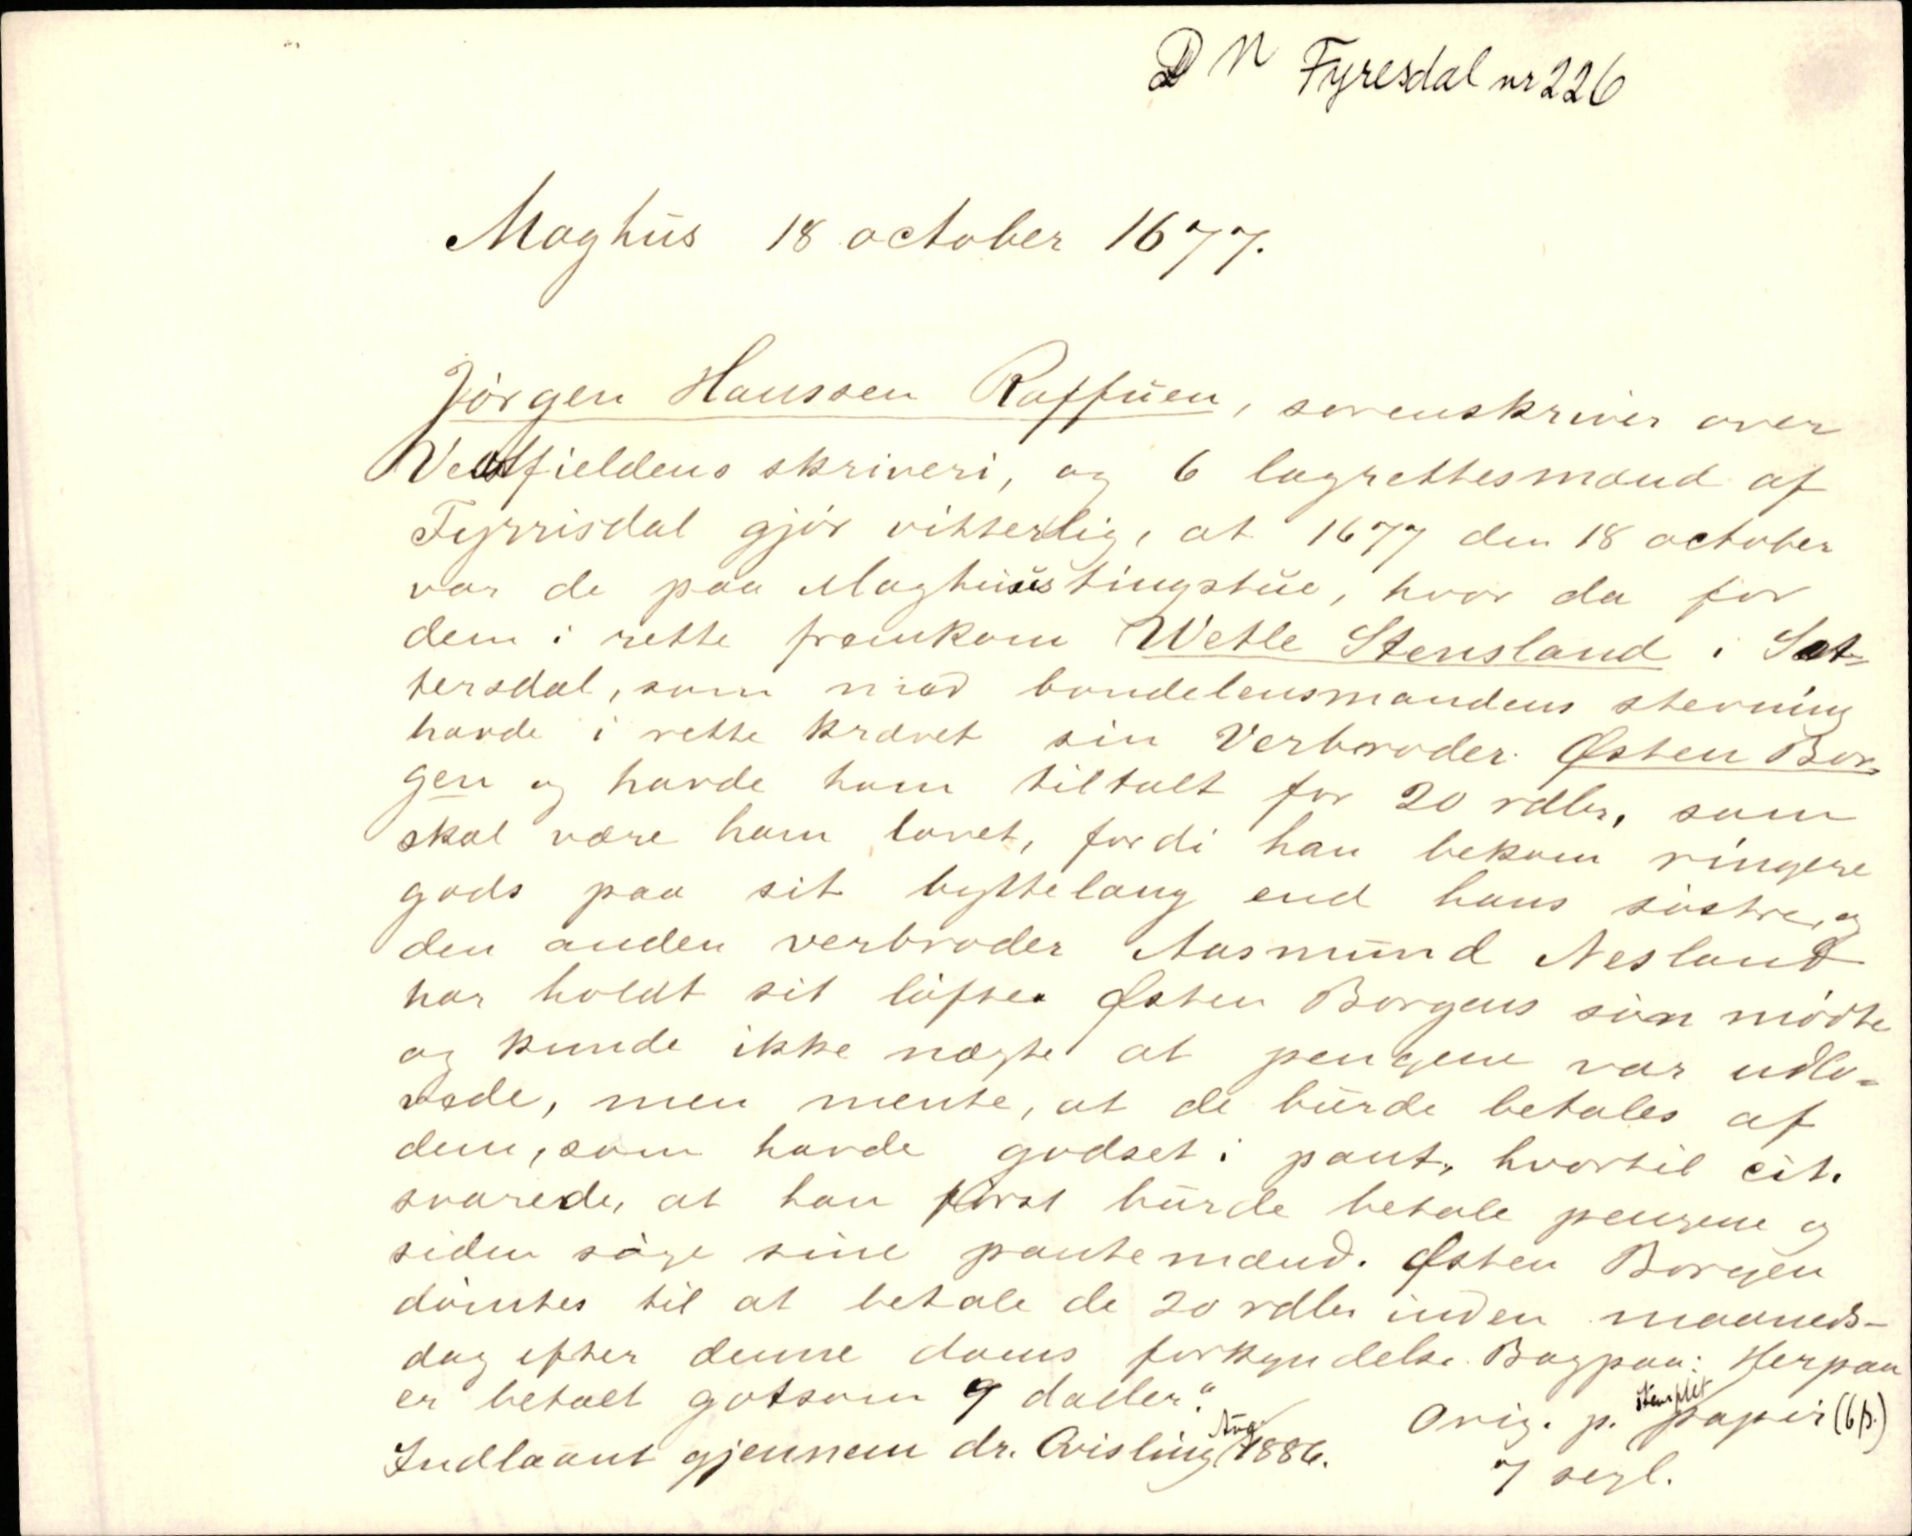 DN Fyresdal nr 226
Moghus 18 october 1677.
Jörgen Hanssen Raffuen, sorenskriver over
Vestfieldens skriveri, og 6 lagrettesmænd af
Fyrrisdal gjör vitterlig, at 1677 den 18 october
var de paa Moghuus tingstue, hvor da for
dem i rette fremkom Wetle Stensland i Sæt-
tersdal, som med bondelensmandens stevning
havde i rette krævet sin Verbroder Østen Bor-
gen og havde ham tiltalt for 20 rdlr, som
skal være ham lovet, fordi han bekom ringere
gods paa sit byttelaug end hans söstre, og
den anden verbroder Aasmund Nesland
har holdt sit löfte. Østen Borgens sön mödte
og kunde ikke nægte at pengene var udlo-
vede, men mente, at de burde betales af
dem, som havde godset i pant, hvortil cit.
svarede, at han först burde betale pengene og
siden söge sine pantemænd. Østen Borgen
dömtes til at betale de 20 rdlr inden maaneds-
dag efter denne doms forkyndelse. Bagpaa: Herpaa
er betalt gotsom 9 daller."
Orig. p. stemplet papir (6 β.)
7 segl.
Indlaant gjennem dr. Qvisling Aug. 1886.